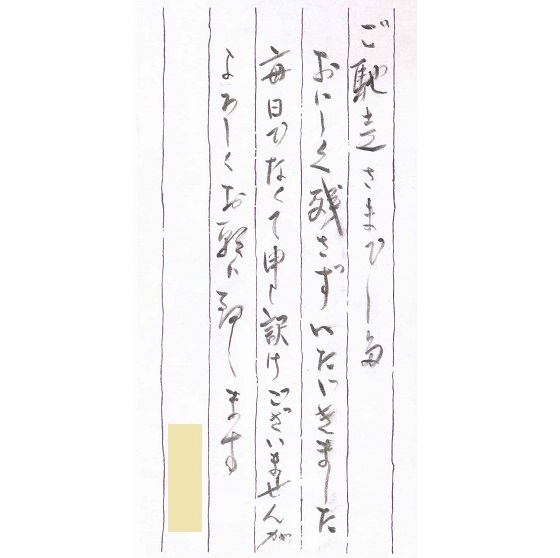 ご馳走さまでした
おいしく残さずいただきました
毎日でなくて申し訳けございませんが
よろしくお願い致します